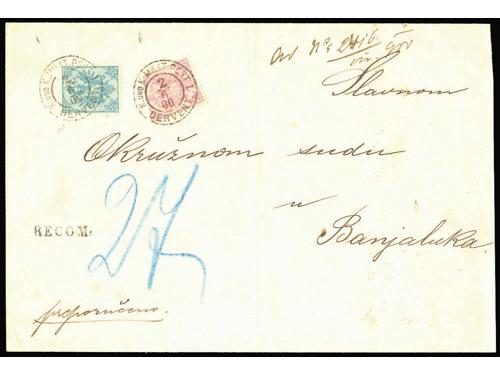 K. UND K. MILIT. POST
DERVENT
K. UND K. MILIT. POST
2
6
00
DERVENT
Slavnom
Okružnom sudu
u
Banjaluka.
RECOM.
27
preporučeno